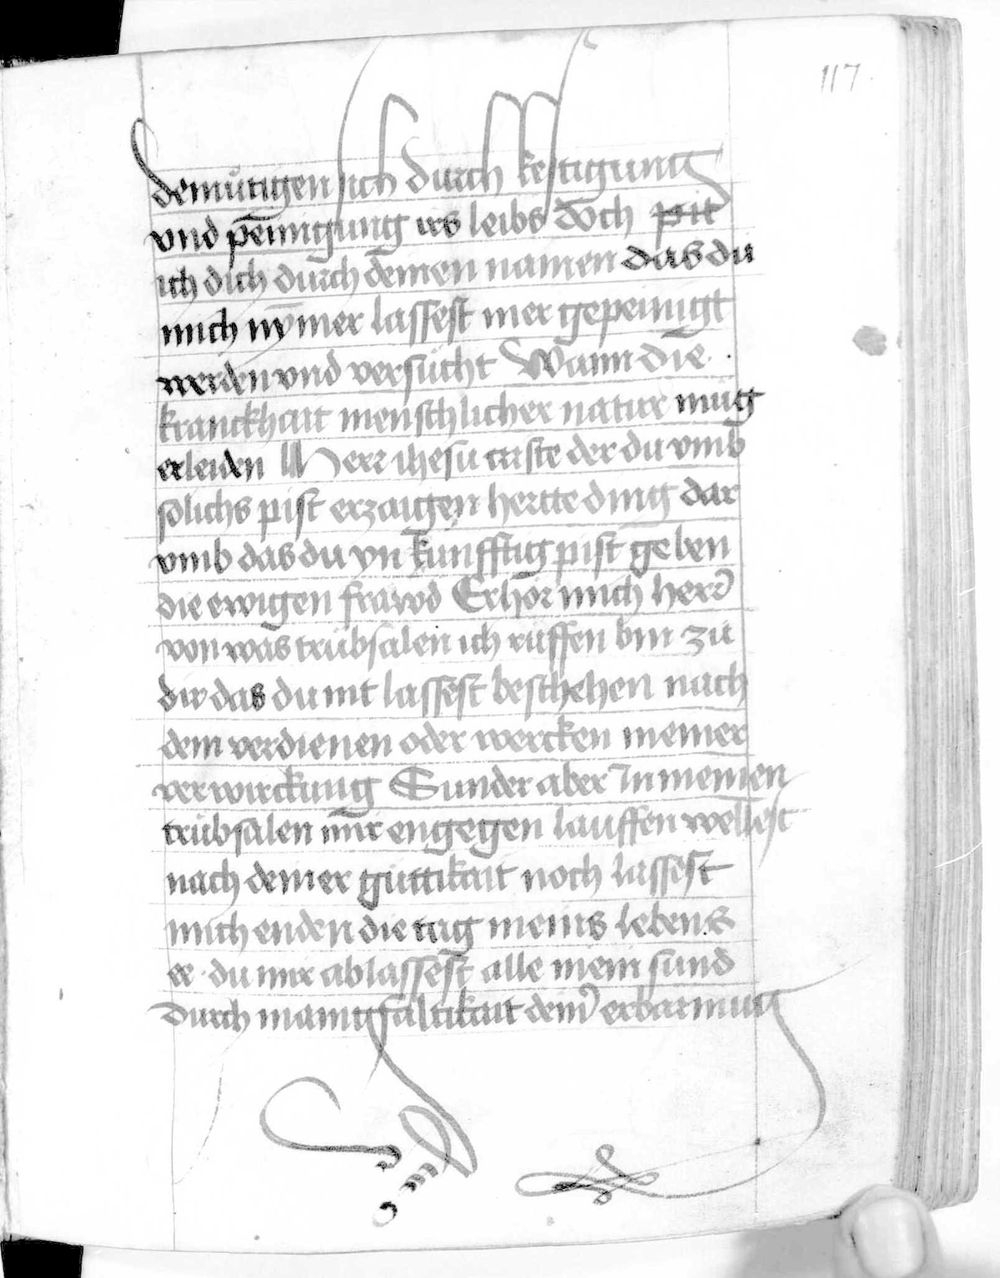 117
demütigen sich durch kestigung
vnd peinigung irs leibs doch pit
ich dich durch deinen namen das du
mich nymer lassest mer gepeinigt
werden vnd versücht Wann die
kranckhait menschlicher natur mug
erleiden Herr ihesu criste der du vmb
solichs pist erzaigen hertte ding dar
vmb das du yn kunfftig pist geben
die ewigen frawd Erhör mich herr
von was trübsalen ich rüffen bin zü
dir das du nit lassest beschehen nach
dem verdienen oder wercken meiner
verwirckung Sunder aber In meinen
trübsalen mir engegen lauffen wellest
nach deiner güttikait noch lassest
mich enden die tag meins lebens
ee du mir ablassest alle mein sünd
durch manigfaltikait deiner erbarmung